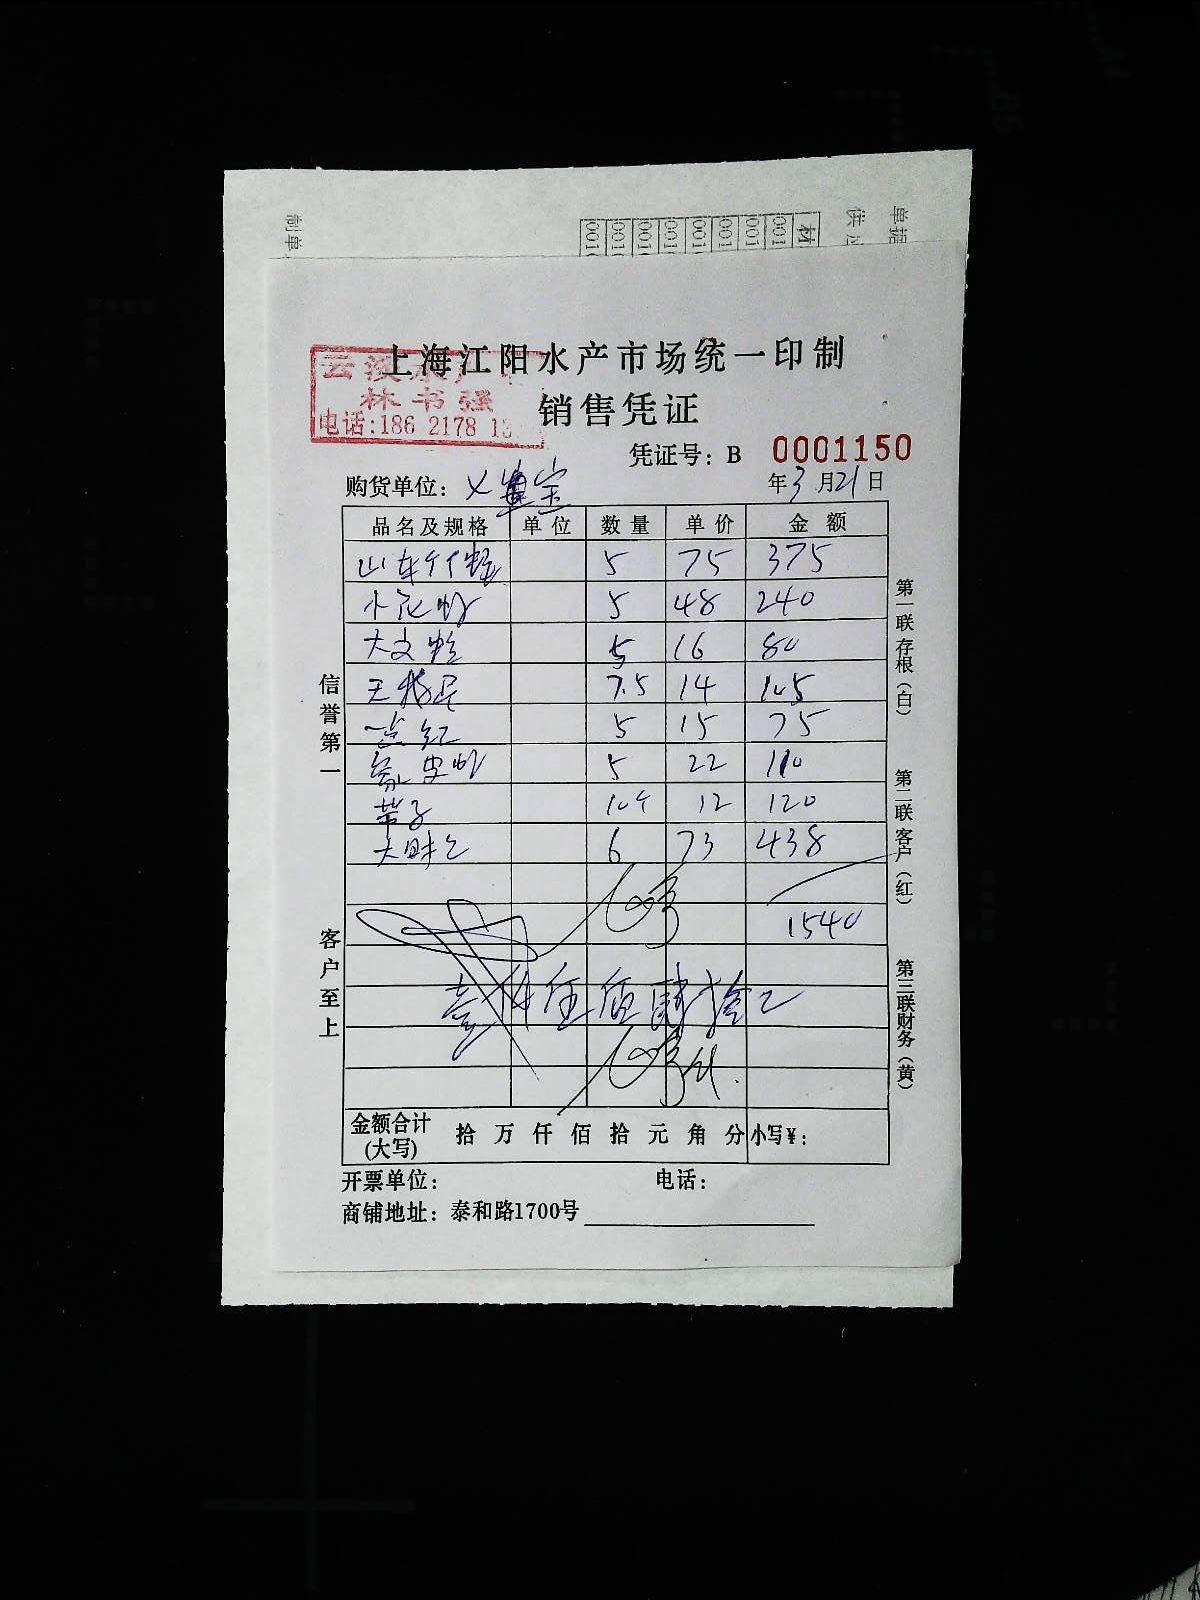 单据
供应
制单
材
001
001
001
001
001
001
0010
0010
上海江阳水产市场统一印制
云溪水产
林书强
电话:186 2178 13
销售凭证
凭证号: B 0001150
购货单位:
年3月21日
品名及规格 单位 数量 单价 金额
山东竹蛏 5 75 375
小花 5 48 240
大文蛤 5 16 80
7.5 14 105
一点红 5 15 75
象皮 5 22 110
带子 10个 12 120
大 6 73 438
1540
壹仟伍佰肆拾元
金额合计(大写) 拾 万 仟 佰 拾 元 角 分 小写¥:
开票单位: 电话:
商铺地址: 泰和路1700号
信誉第一
客户至上
第一联 存根(白)
第二联 客户(红)
第三联 财务(黄)